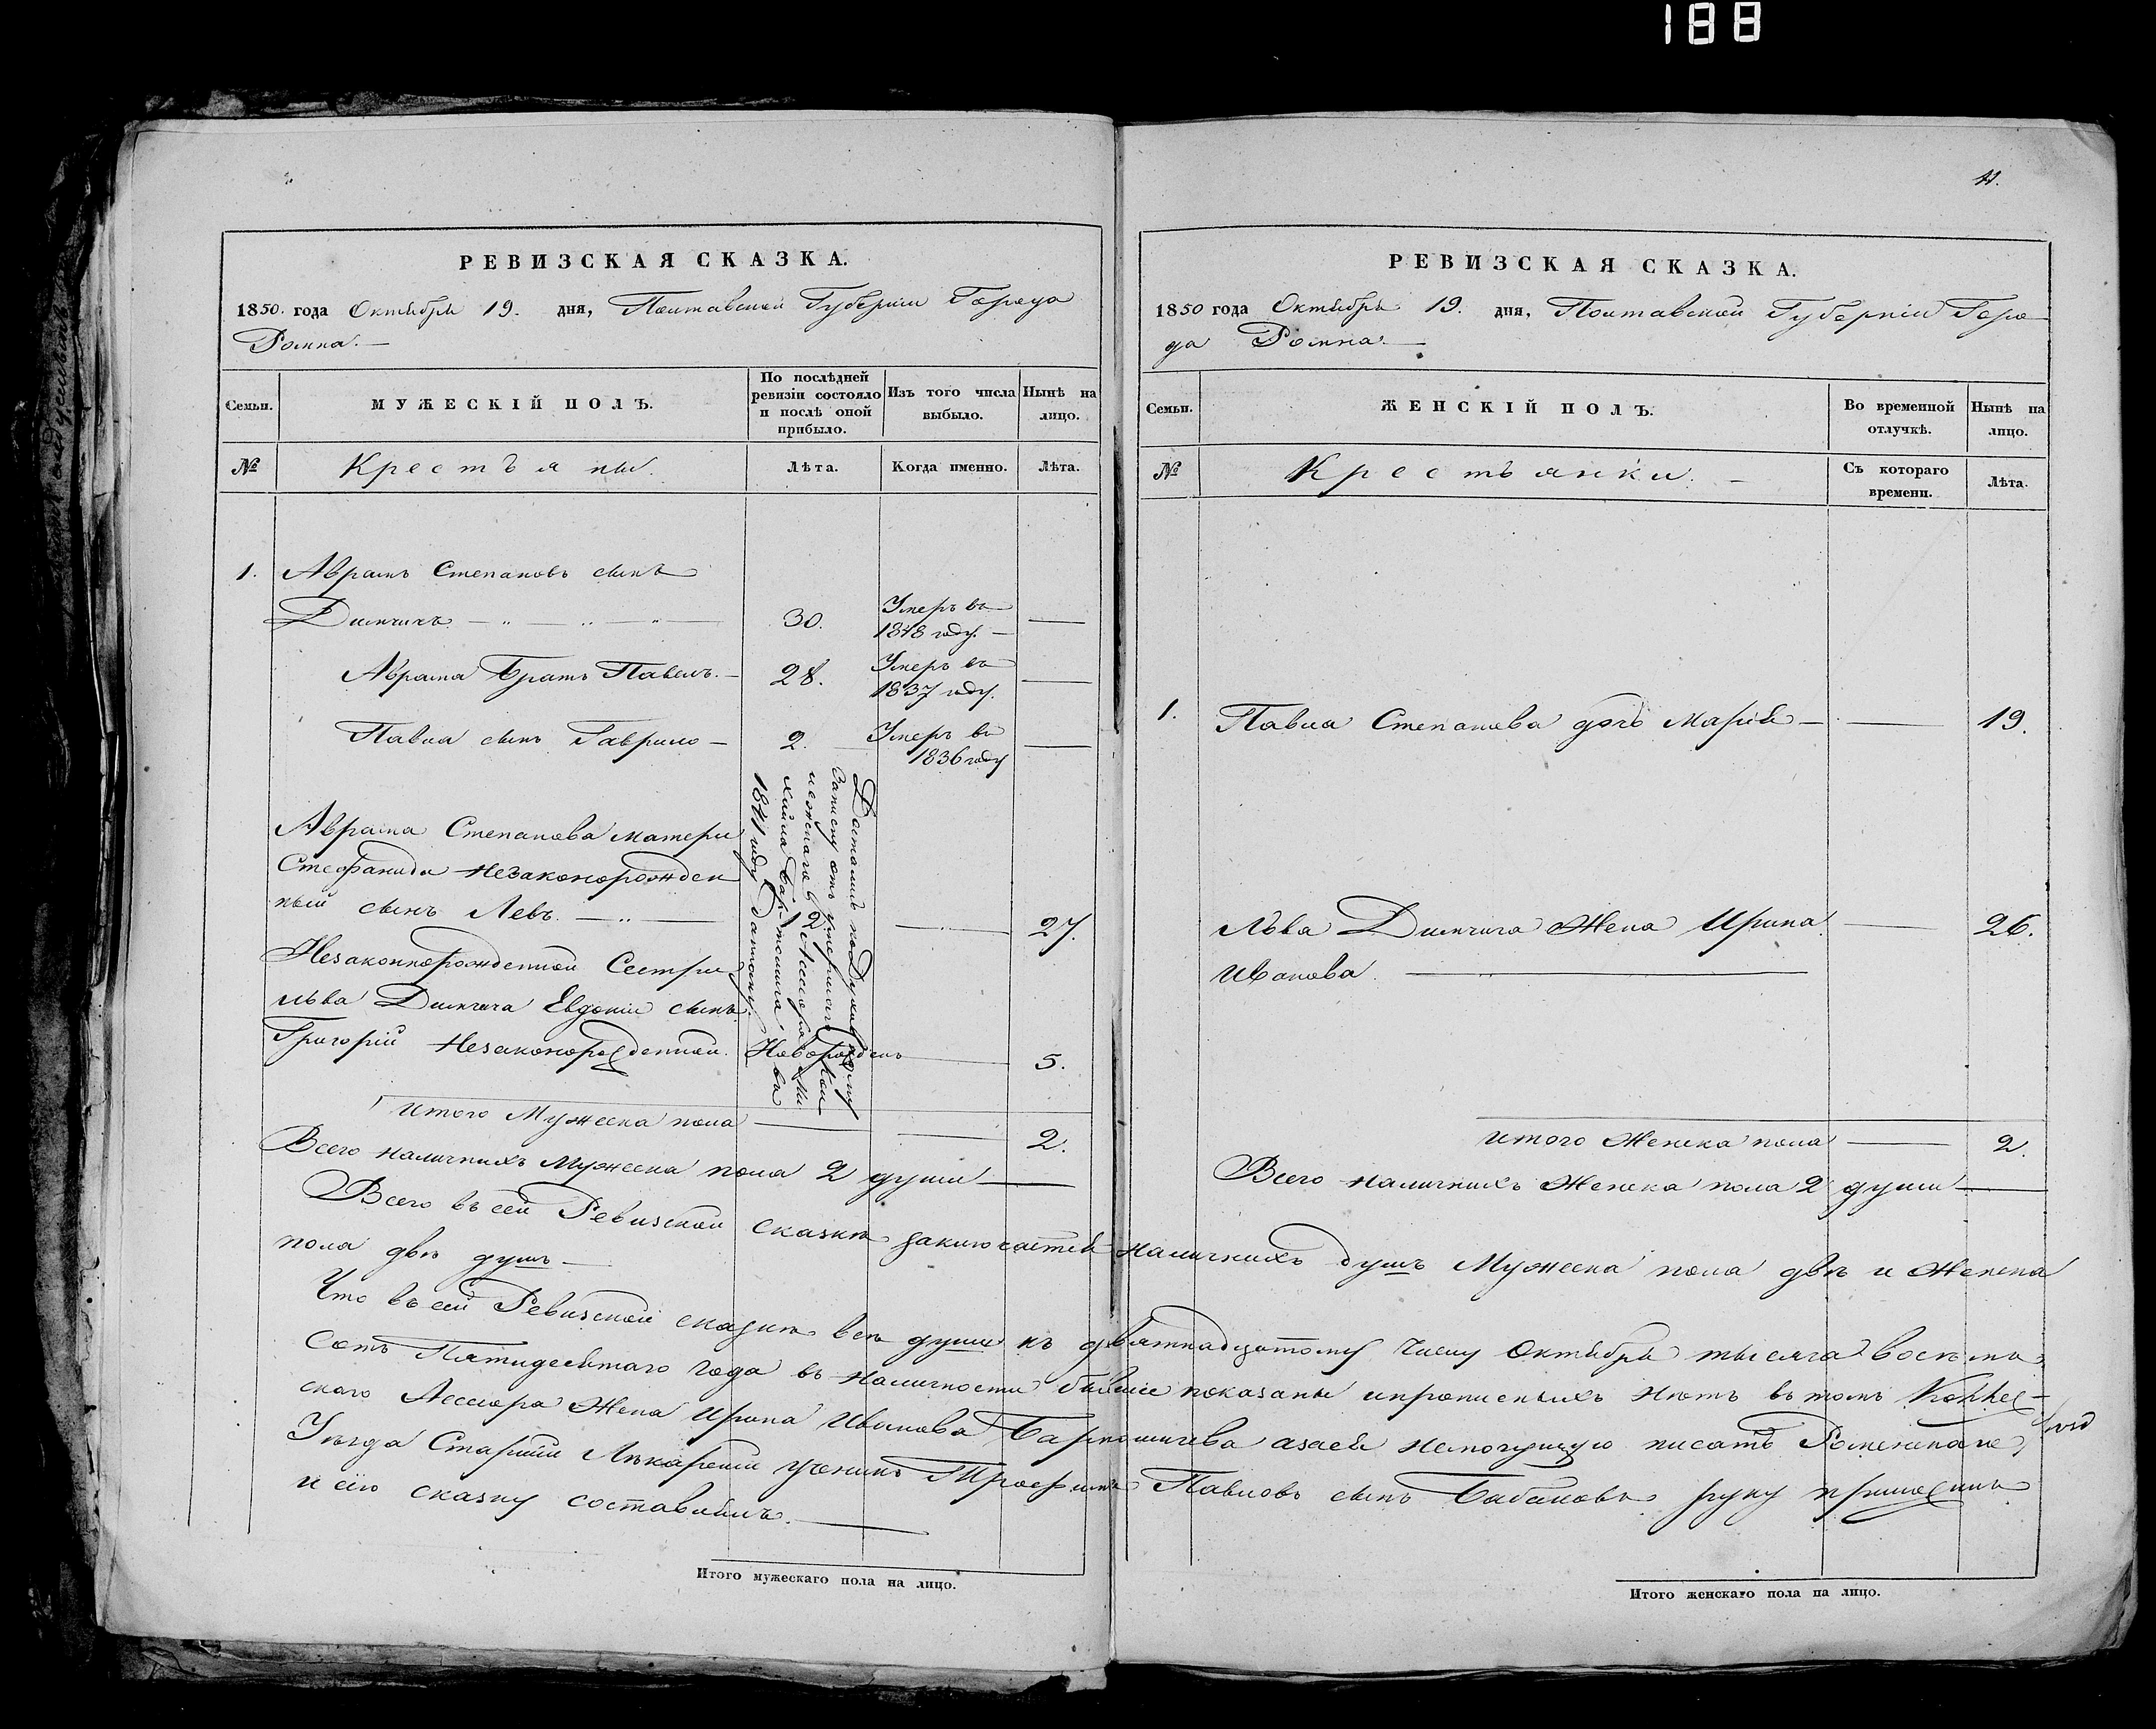 188
РЕВИЗСКАЯ СКАЗКА.
1850. года Октября 19. дня, Полтавской Губерніи Города
Ромна.—
Семьи.
МУЖЕСКІЙ ПОЛЪ.
По послѣдней
ревизіи состояло
и послѣ оной
прибыло.
Изъ того числа
выбыло.
Нынѣ на
лицо.
№
Крестьяны.
Лѣта.
Когда именно.
Лѣта.
1. Аврамъ Степановъ сынъ
Димчичъ — „ — „ — „ — 30. Умеръ въ
1848 году. —
Аврама Братъ Павелъ. — 28. Умеръ въ
1837 году.
Павла сынъ Гаврило — 2. Умеръ въ
1836 году
Аврама Степанова матери
Стефаниды незаконорожден
ный сынъ Левъ. — „ — 27.
Незаконнорожденной Сестры
Льва Димчича Евдокіи сынъ
Григорій Незаконорожденной. Новорожденъ 5.
Достались по Духовному
Запису отъ умершаго
1841 году
Итого Мужеска пола 2.
Всего наличныхъ Мужеска пола 2 души
11.
РЕВИЗСКАЯ СКАЗКА.
1850 года Октября 19. дня, Полтавской Губерніи Горо
да Ромна.—
Семьи.
ЖЕНСКІЙ ПОЛЪ.
Во временной
отлучкѣ.
Нынѣ на
лицо.
№
Крестьянки. —
Съ котораго
времени.
Лѣта.
1. Павла Степанова дочь Марія — 19.
Льва Димчича Жена Ирина 26.
Иванова.
Итого Женска пола 2.
Всего наличныхъ Женска пола 2 души
Всего въ сей Ревизской сказкѣ заключается наличныхъ душъ Мужеска пола двѣ и Женска
пола двѣ душъ —
Что въ сей Ревизской сказкѣ всѣ души къ девятнадцатому числу Октября тысяча восемь
сотъ Пятидесятаго года въ наличности бывшіе показаны и прописныхъ нѣтъ въ томъ
скаго Асссора Жена Ирина Иванова немогущую писать Роменскаго
Уѣзда Старшій Лѣкарскій ученикъ Трофимъ Павловъ сынъ Бабаковъ руку приложилъ
и сію сказку составилъ.
Итого мужескаго пола на лицо.
Итого женскаго пола на лицо.